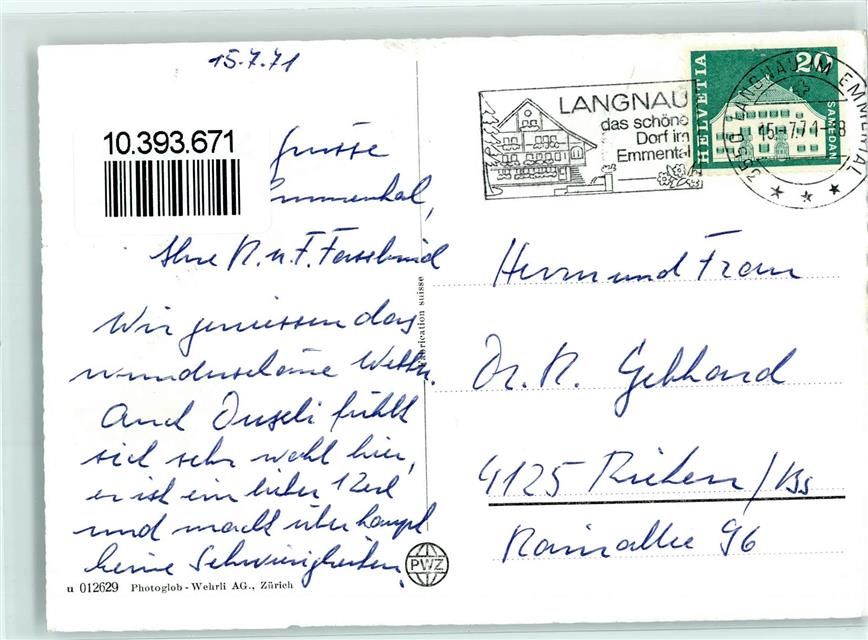 15.7.71
10.393.671
Grüsse
Emmenthal,
Ihre R. u. F. Fassbind
Wir geniessen das
wunderschöne Wetter.
Auch Duseli fühlt
sich sehr wohl hier,
er ist ein lieber Kerl
und macht überhaupt
keine Schwierigkeiten.
u 012629 Photoglob - Wehrli AG., Zürich
Fabrication suisse
PWZ
LANGNAU
das schöne
Dorf im
Emmental
HELVETIA
20
SAMEDAN
3550 LANGNAU IM EMMENTAL
15-7.71-8
Herrn und Frau
Dr. R. Gebhard
4125 Riehen / Bs
Rainallee 96